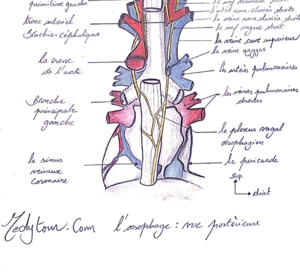 primitive gauche
tronc artériel
Brachio-céphalique
la crosse
de l'aorte
Bronche
principale
gauche
le sinus
veineux
coronaire
le nerf vague droit
la veine cave supérieure
la veine azygos
les artères pulmonaires
les veines pulmonaires
droites
le plexus vagal
œsophagien
le péricarde
sup
droit
Medytour.Com l'œsophage : vue postérieure